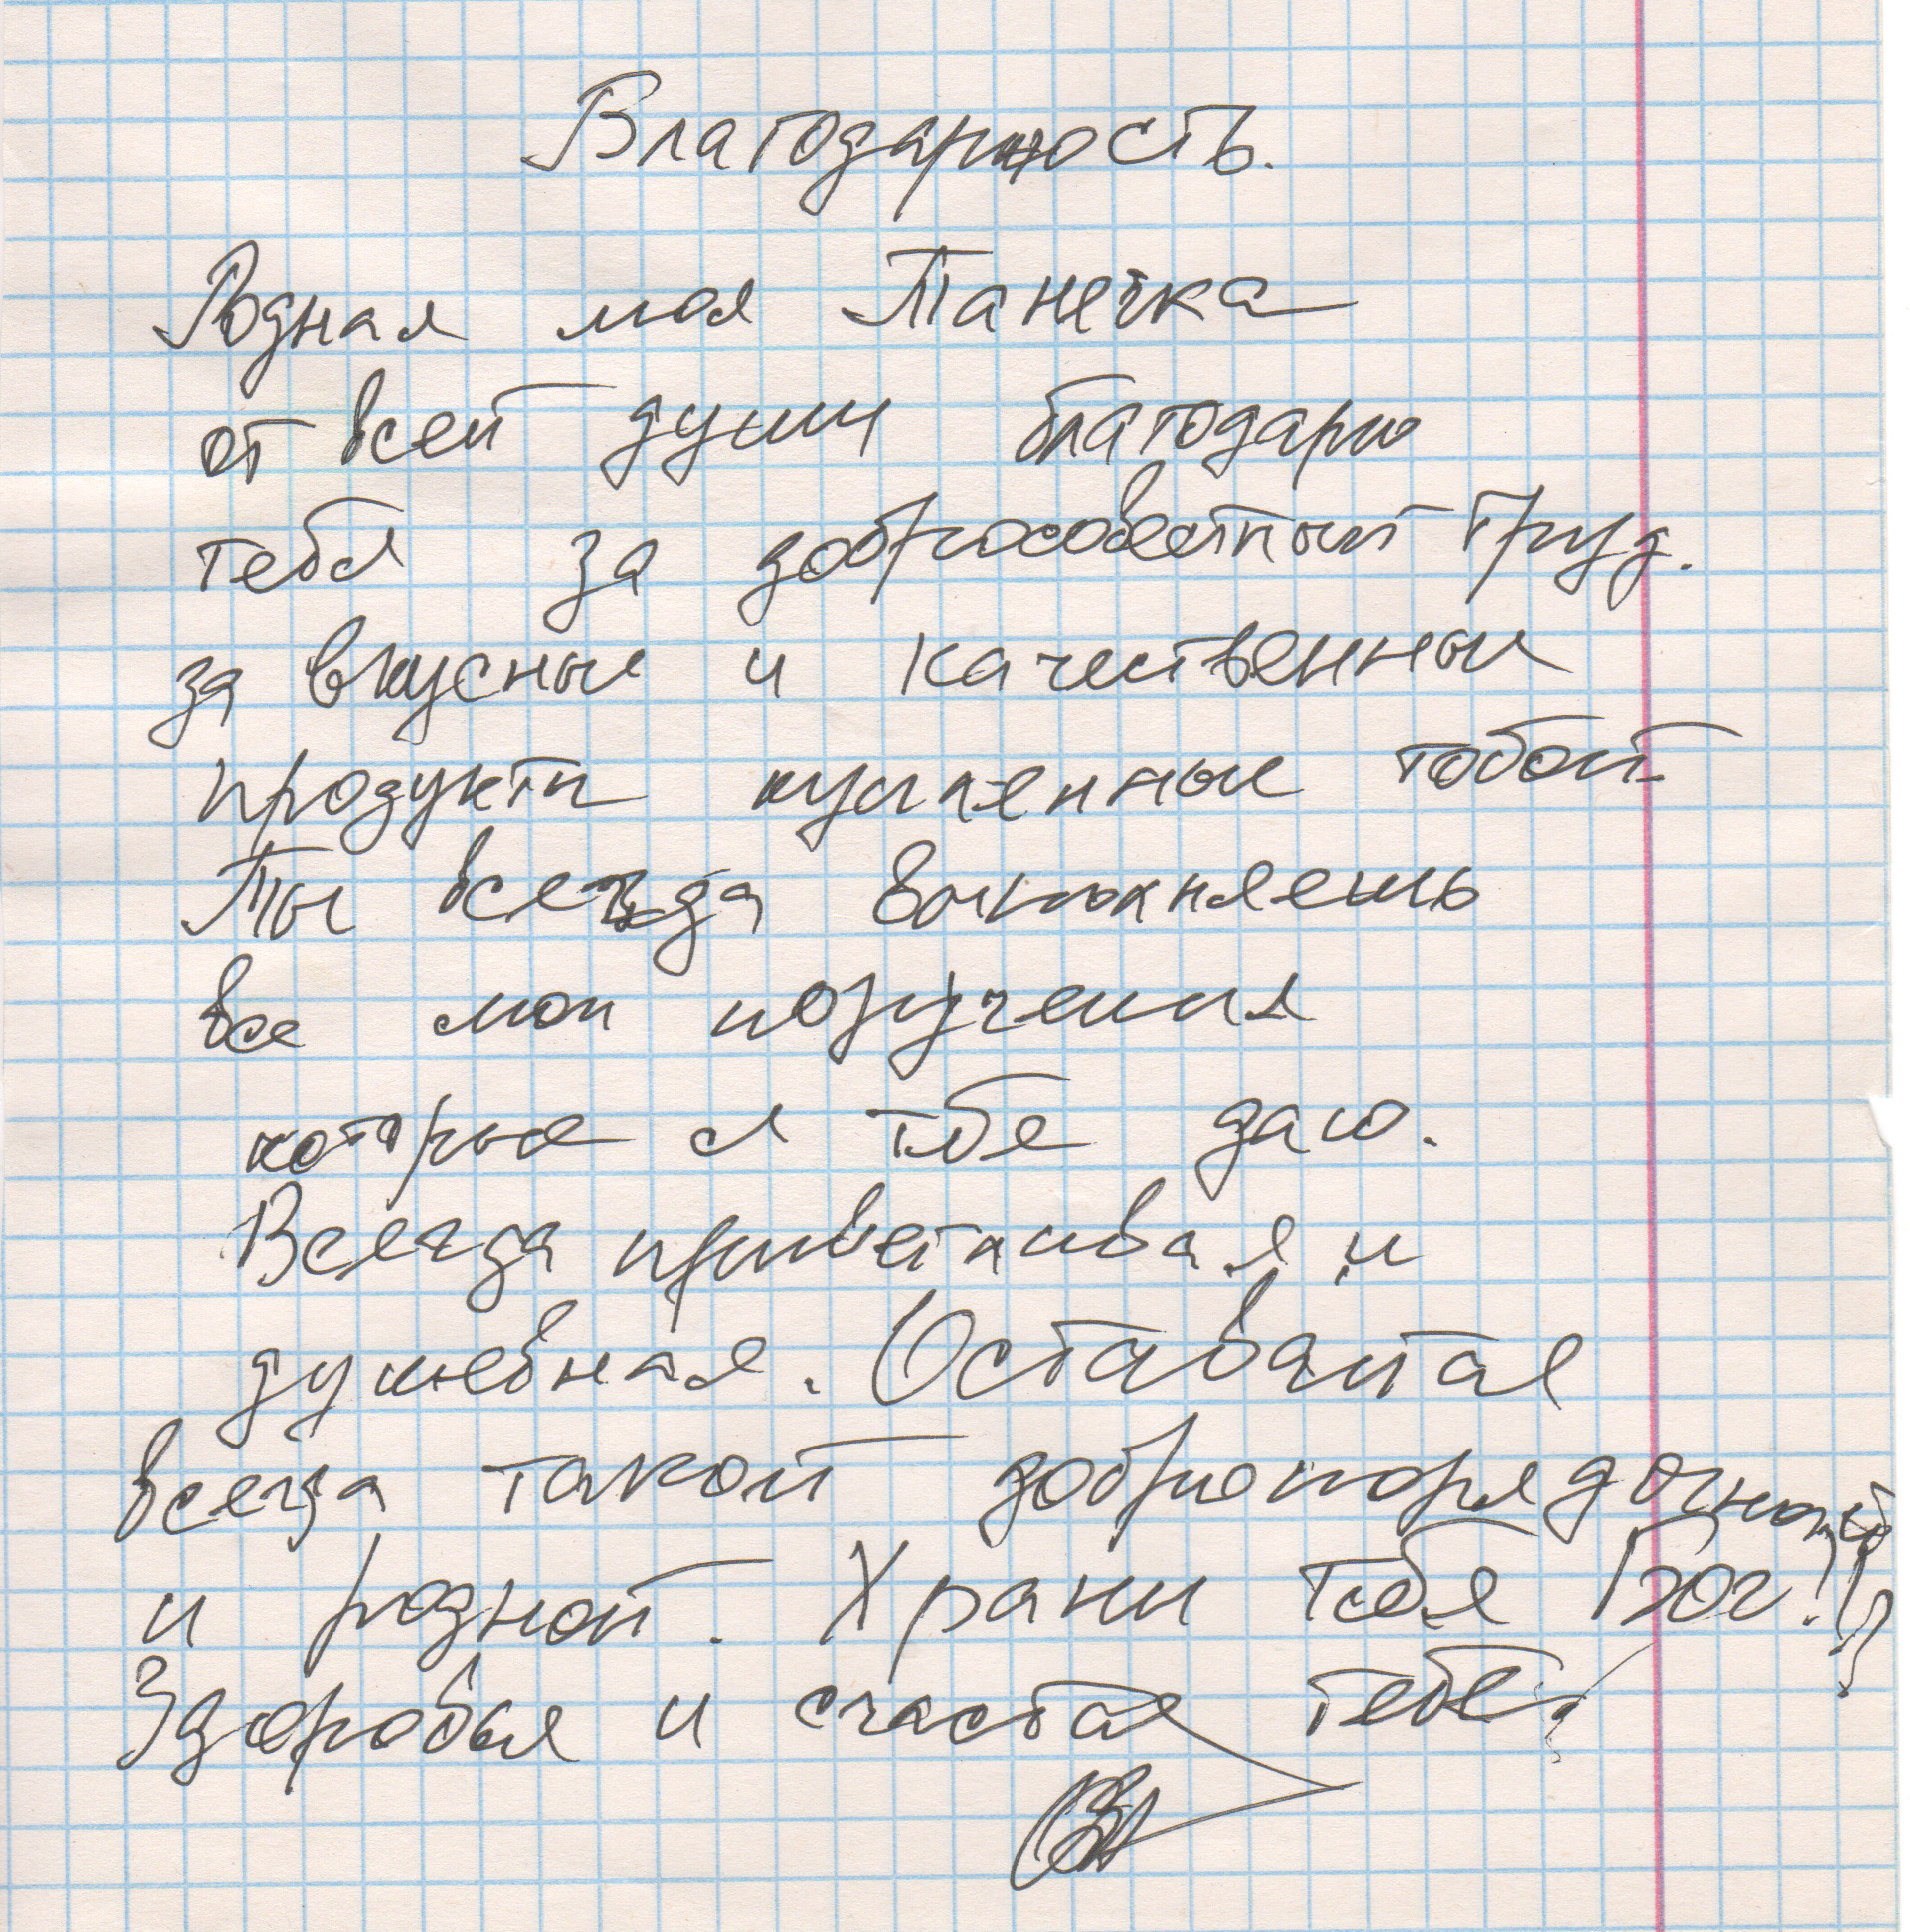 Благодарность.
Родная моя Танечка
от всей души благодарю
тебя за добросоветный труд.
за вкусные и качественные
продукты купленные тобой
Ты всегда выполняешь
все мои поручения
которые я тебе даю.
Всегда приветливая и
душебная. Оставайтая
всегда такой добропорядочной
и родной. Храни тебя Бог!!!
Здоровья и счастья тебе!